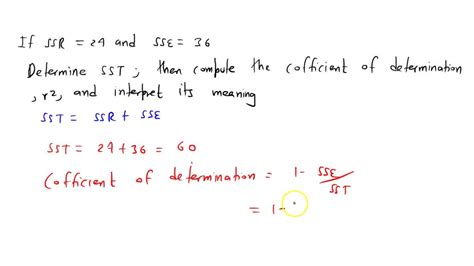 If SSR = 24 and SSE = 36
Determine SST ; then compute the cofficient of determination
, r2, and interpret its meaning
SST = SSR + SSE
SST = 24 + 36 = 60
Cofficient of determination = 1 - SSE/SST
= 1 -